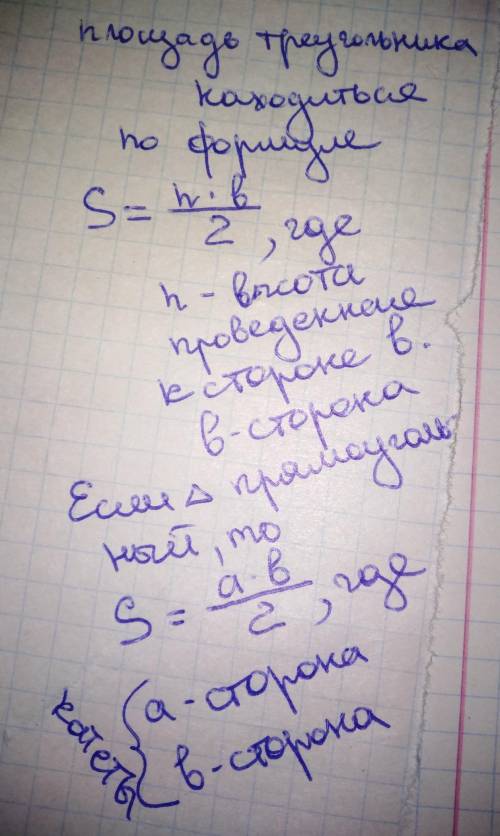 площадь треугольника
находиться
по формуле
S = h · в / 2, где
h - высота
проведенная
к стороне в.
в - сторона
Если △ прямоуголь
ный, то
S = а · в / 2, где
катеты { а - сторона
в - сторона